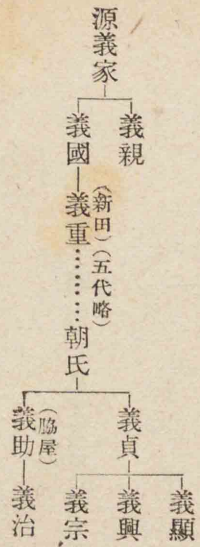 源義家
義親
義國
義重
(新田)(五代略)
朝氏
義貞
義顯
義興
義宗
(脇屋)
義助
義治